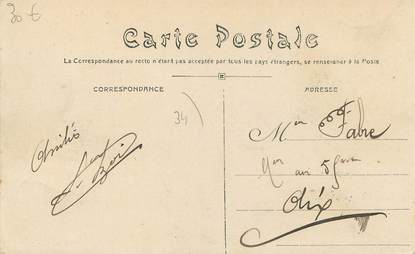 30 €
Carte Postale
La Correspondance au recto n'étant pas acceptée par tous les pays étrangers, se renseigner à la Poste
CORRESPONDANCE
34)
Amitiés
ADRESSE
Mon Fabre
Aix